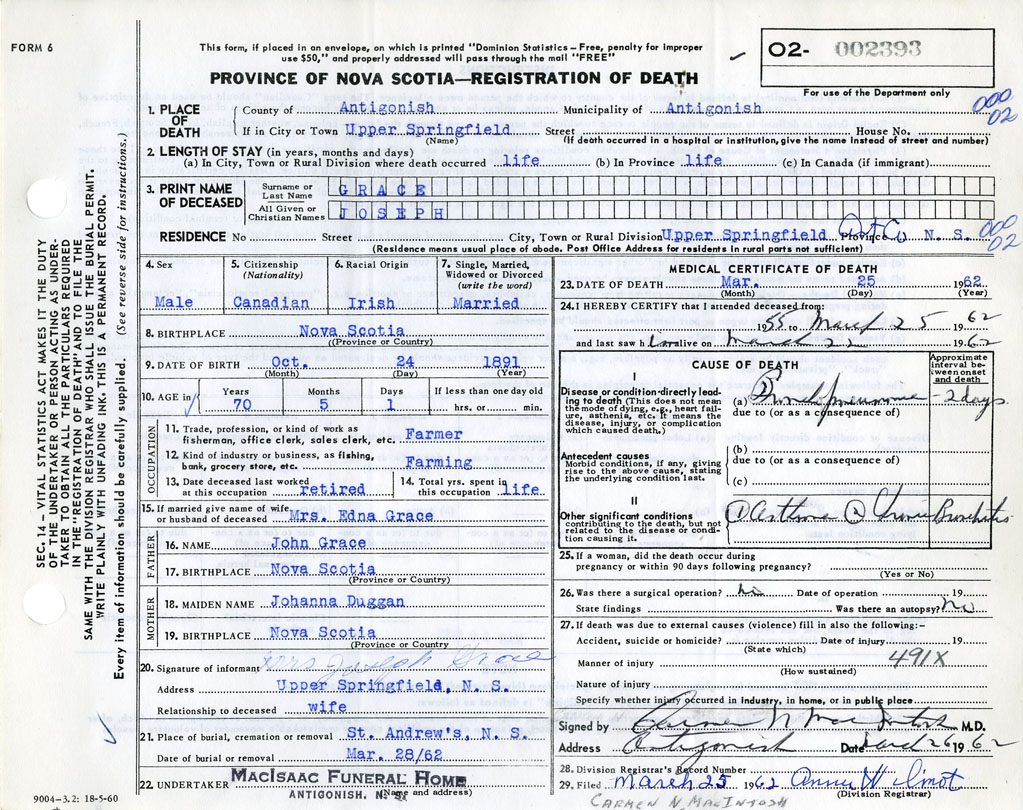 FORM 6
This form, if placed in an envelope, on which is printed "Dominion Statistics – Free, penalty for improper
use $50," and properly addressed will pass through the mail "FREE"
O2- 002393
For use of the Department only
PROVINCE OF NOVA SCOTIA—REGISTRATION OF DEATH
000
02
1. PLACE OF DEATH
County of Antigonish Municipality of Antigonish
If in City or Town Upper Springfield Street House No.
(Name) (If death occurred in a hospital or institution, give the name instead of street and number)
2. LENGTH OF STAY (in years, months and days)
(a) In City, Town or Rural Division where death occurred life (b) In Province life (c) In Canada (if immigrant)
3. PRINT NAME OF DECEASED
Surname or Last Name GRACE
All Given or Christian Names JOSEPH
RESIDENCE No Street City, Town or Rural Division Upper Springfield Ant Co Province N. S.
000
02
(Residence means usual place of abode. Post Office Address for residents in rural parts not sufficient)
4. Sex
Male
5. Citizenship (Nationality)
Canadian
6. Racial Origin
Irish
7. Single, Married, Widowed or Divorced (write the word)
Married
8. BIRTHPLACE Nova Scotia
(Province or Country)
9. DATE OF BIRTH Oct. 24 1891
(Month) (Day) (Year)
10. AGE in Years Months Days If less than one day old
70 5 1 hrs. or min.
OCCUPATION
11. Trade, profession, or kind of work as
fisherman, office clerk, sales clerk, etc. Farmer
12. Kind of industry or business, as fishing,
bank, grocery store, etc. Farming
13. Date deceased last worked
at this occupation retired
14. Total yrs. spent in
this occupation life
15. If married give name of wife
or husband of deceased Mrs. Edna Grace
FATHER
16. NAME John Grace
17. BIRTHPLACE Nova Scotia
(Province or Country)
MOTHER
18. MAIDEN NAME Johanna Duggan
19. BIRTHPLACE Nova Scotia
(Province or Country
20. Signature of informant Mrs Joseph Grace
Address Upper Springfield, N. S.
Relationship to deceased wife
21. Place of burial, cremation or removal St. Andrew's, N. S.
Date of burial or removal Mar. 28/62
22. UNDERTAKER MacIsaac Funeral Home
ANTIGONISH, N. S. (Name and address)
MEDICAL CERTIFICATE OF DEATH
23. DATE OF DEATH Mar. 25 1962
(Month) (Day) (Year)
24. I HEREBY CERTIFY that I attended deceased from:
1955 to March 25 1962
and last saw him alive on March 22 1962
CAUSE OF DEATH
Approximate interval between onset and death
I
Disease or condition directly leading to death (This does not mean
the mode of dying, e.g., heart failure, asthenia, etc. It means the
disease, injury, or complication
which caused death.)
(a) Bronchopneumonia - 2 days
due to (or as a consequence of)
Antecedent causes
Morbid conditions, if any, giving
rise to the above cause, stating
the underlying condition last.
(b)
due to (or as a consequence of)
(c)
II
Other significant conditions
contributing to the death, but not
related to the disease or condition causing it.
① Asthma ② Chronic Bronchitis
25. If a woman, did the death occur during
pregnancy or within 90 days following pregnancy?
(Yes or No)
26. Was there a surgical operation? No Date of operation 19
State findings Was there an autopsy? No
27. If death was due to external causes (violence) fill in also the following:-
Accident, suicide or homicide? Date of injury 19
(State which)
491X
Manner of injury
(How sustained)
Nature of injury
Specify whether injury occurred in industry, in home, or in public place
Signed by Carmen N MacIntosh M.D.
Address Antigonish Date March 26 1962
28. Division Registrar's Record Number
29. Filed March 25 1962
(Division Registrar)
CARMEN N. MACINTOSH
SEC. 14 – VITAL STATISTICS ACT MAKES IT THE DUTY
OF THE UNDERTAKER OR PERSON ACTING AS UNDER-
TAKER TO OBTAIN ALL THE PARTICULARS REQUIRED
IN THE "REGISTRATION OF DEATH" AND TO FILE THE
SAME WITH THE DIVISION REGISTRAR WHO SHALL ISSUE THE BURIAL PERMIT.
WRITE PLAINLY WITH UNFADING INK. THIS IS A PERMANENT RECORD.
Every item of information should be carefully supplied. (See reverse side for instructions.)
9004-3.2: 18-5-60